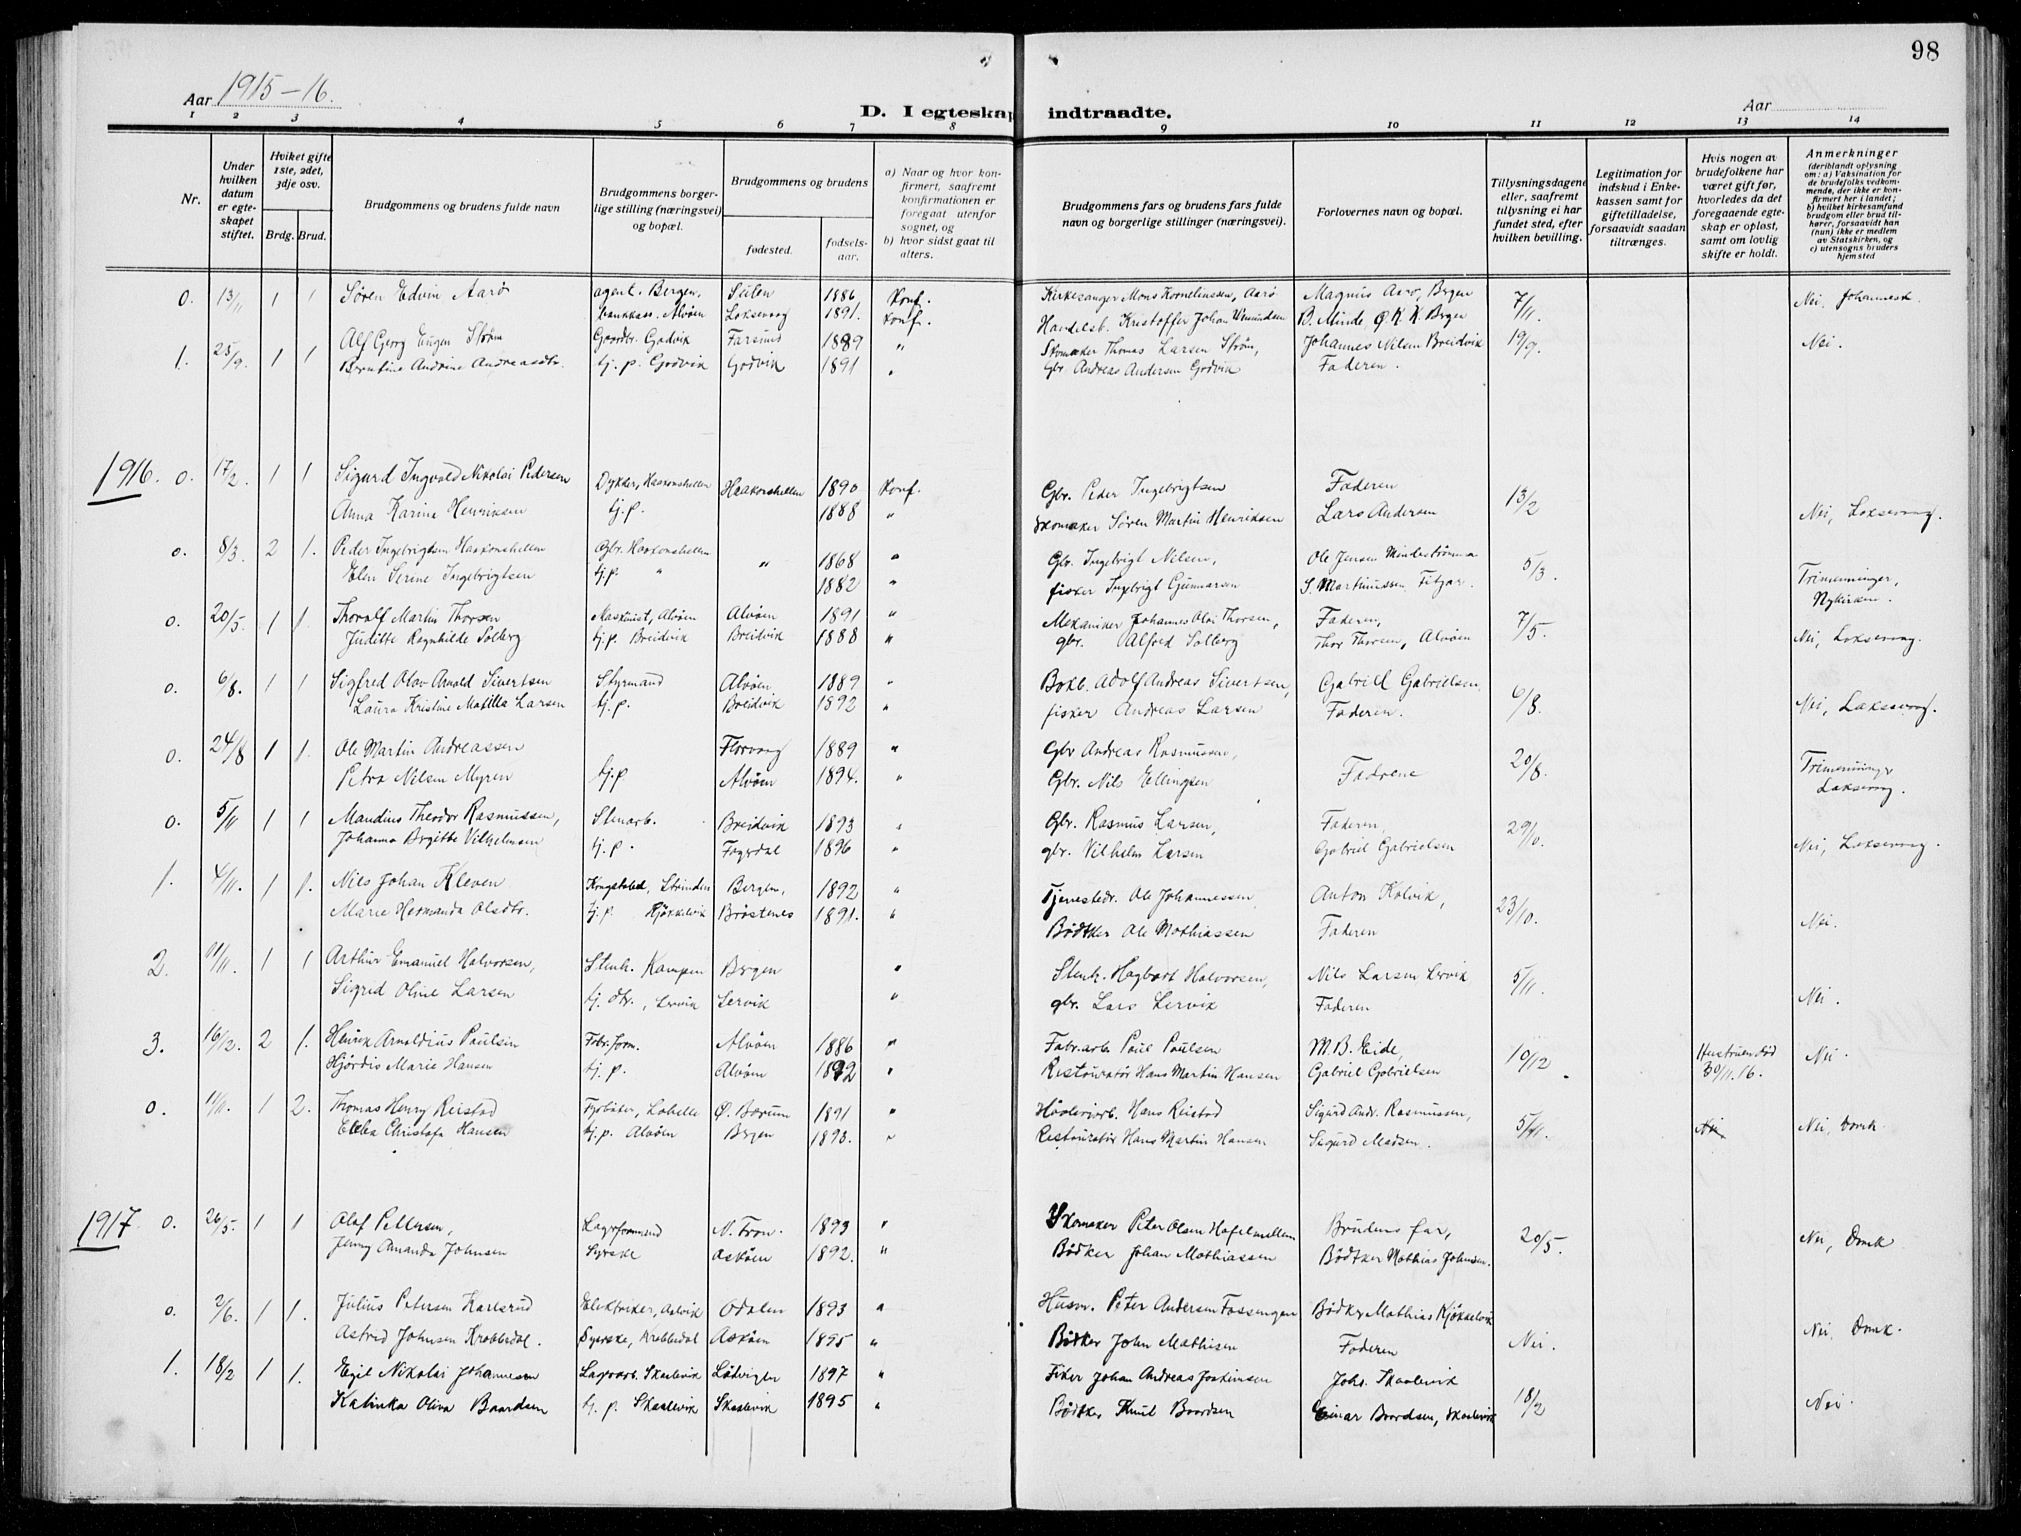 98
Aar 1915-16.
D. I egteskap indtraadte.
Aar
1 2 3 4 5 6 7 8 9 10 11 12 13 14
Nr.
Under hvilken datum er egteskapet stiftet.
Hviket gifte 1ste, 2det, 3dje osv.
Brdg. Brud.
Brudgommens og brudens fulde navn
Brudgommens borgerlige stilling (næringsvei) og bopæl.
Brudgommens og brudens
fødested.
fødselsaar.
a) Naar og hvor konfirmert, saafremt konfirmationen er foregaat utenfor sognet, og
b) hvor sidst gaat til alters.
Brudgommens fars og brudens fars fulde navn og borgerlige stillinger (næringsvei).
Forlovernes navn og bopæl.
Tillysningsdagene eller, saafremt tillysning ei har fundet sted, efter hvilken bevilling.
Legitimation for indskud i Enkekassen samt for giftetilladelse, forsaavidt saadan tiltrænges.
Hvis nogen av brudefolkene har været gift før, hvorledes da det foregaaende egteskap er opløst, samt om lovlig skifte er holdt.
Anmerkninger (deriblandt oplysning om: a) Vaksination for de brudefolks vedkommende, der ikke er konfirmert her i landet; b) hvilket kirkesamfund brudgom eller brud tilhører, forsaavidt han (hun) ikke er medlem av Statskirken, og c) utensogns bruders hjemsted
0. 13/11 1 1 Søren Edvin Aarø agent. Bergen. 1886 Konf. Kirkesanger Mons Kornelinssen, Aarø Magnus Aarø, Bergen 7/11. Nei, Johannesk.
Alvøen Laksevaag 1891. Konf. Handelsb. Kristoffer Johan B. Minde, Ø.K.K. Bergen
1. 25/9. 1 1 Alf Georg Eugen Strøm Gaardbr. Godvik Farsund 1889 " Skomaker Thomas Larsen Strøm, Johannes Nilsen Breidvik 19/9. Nei.
Berntine Andrine Andreasdtr. hj. p. Godvik Godvik 1891 " Gbr. Andreas Andersen Godvik Faderen.
1916. 0. 17/2. 1 1 Sigurd Ingvald Nikolai Pedersen Dykker, Haakonshellen Haakonshellen 1890 Konf. Gbr. Peder Ingebrigtsen Faderen 13/2
Anna Karine Henriksen hj. p. 1888 " Skomaker Søren Martin Henriksen Lars Andersen Nei, Laksevaag.
0. 8/3. 2 1. Peder Ingebrigtsen Haakonshellen Gbr. Haakonshellen " 1868 " Gbr. Ingebrigt Nilsen, Ole Jensen 5/3.
Elen Serine Ingebrigtsen hj. p. " 1882 " fisker Ingebrigt Gunnarsen S. Martinussen Fitjar. Trimenninger, Nykirken.
0. 20/5. 1 1. Thoralf Martin Thorsen Maskinist, Alvøen Alvøen 1891 " Mekaniker Johannes Olai Thorsen, Faderen, 7/5.
Juditte Ragnhilde Solberg hj. p. Breidvik Breidvik 1888 " gbr. Alfred Solberg Thor Thorsen, Alvøen Nei, Laksevaag.
0. 6/8. 1 1 Sigfred Olav Arnold Sivertsen Styrmand Alvøen. 1889 " Bokb. Adolf Andreas Sivertsen, Gabriel Gabrielsen, 6/8.
Laura Kristine Matilla Larsen hj. p. Breidvik 1892 " fisker Andreas Larsen Faderen. Nei, Laksevaag.
0. 24/8 1 1. Ole Martin Andreassen Florvaag 1889 " Gbr Andreas Rasmussen, 20/8.
Petra Nilsen Myren hj. p Alvøen 1894. " Gbr. Nils Ellingsen Fædrene Trimenninger Laksevaag.
0. 5/11 1 1 Mandius Theodor Rasmussen, Stenarb. Breidvik 1893 " Gbr. Rasmus Larsen, Faderen, 29/10.
Johanna Birgitte Vilhelmsen hj. p. Fagerdal 1896 " gbr. Vilhelm Larsen Gabriel Gabrielsen Nei, Laksevaag.
1. 4/11. 1 1. Nils Johan Kleven Bergen, 1892 " Tjenestedr. Ole Johannessen Anton Kolvik, 23/10.
Marie Hermanda Olsdtr. hj. p. Kjøkkelvik Brøstenes 1891. " Bødtker Ole Mathiassen Faderen Nei.
2. 11/11. 1 1 Arthur Emanuel Halvorsen, Stenh. Kampen Bergen " Stenh. Hagbart Halvorsen, Nils Larsen Lervik 5/11.
Sigrid Oline Larsen hj. dtr., Lervik Lervik " gbr. Lars Lervik Faderen Nei.
3. 16/12. 2 1. Henrik Arnoldius Paulsen Fabr.form. Alvøen 1886 " Fabr.arb. Paul Paulsen M. B. Eide, 10/12. Hustruen død 30/11.16. Nei.
Hjørdis Marie Hansen hj. p. Alvøen 1892 " Restauratør Hans Martin Hansen Gabriel Gabrielsen
0. 11/11. 1 2. Thomas Henry Reistad Fyrbøter, Ø. Bærum 1891 " Hans Reistad Sigurd Andr. Rasmussen, 5/11. Nei, Domk.
Christofa Hansen hj. p. Alvøen Bergen 1893. " Restauratør Hans Martin Hansen Sigurd Madsen.
1917 0. 26/5. 1 1 Olaf Pettersen, Lagerformand N. Fron. 1893 " Skomaker Peter Olsen Brudens far, 20/5.
Jenny Amanda Johnsen Syerske Askøen 1892. " Bødker Johan Mathiassen Bødtker Mathias Johnsen. Nei, Domk
0. 2/6. 1 1. Julius Petersen Karlsrud Elektriker, Odalen 1893 " Husm. Peter Andersen Fossengen Bødker Mathias Kjøkkelvik
Astrid Johnsen Krabbedal. Syerske, Krabbedal Askøen 1895 " Bødker John Mathisen Faderen Nei. Nei, Domk.
1. 18/2 1 1. Egil Nikolai Johannesen Lagerarb. Skaalevik 1897 " Fisker Johan Andreas Johs. Skaalevik 18/2
Katinka Oliva Baardsen hj. p. Skaalevik Skaalevik 1895 " Bødtker Knut Baardsen Einar Baardsen, Skaalevik Nei.